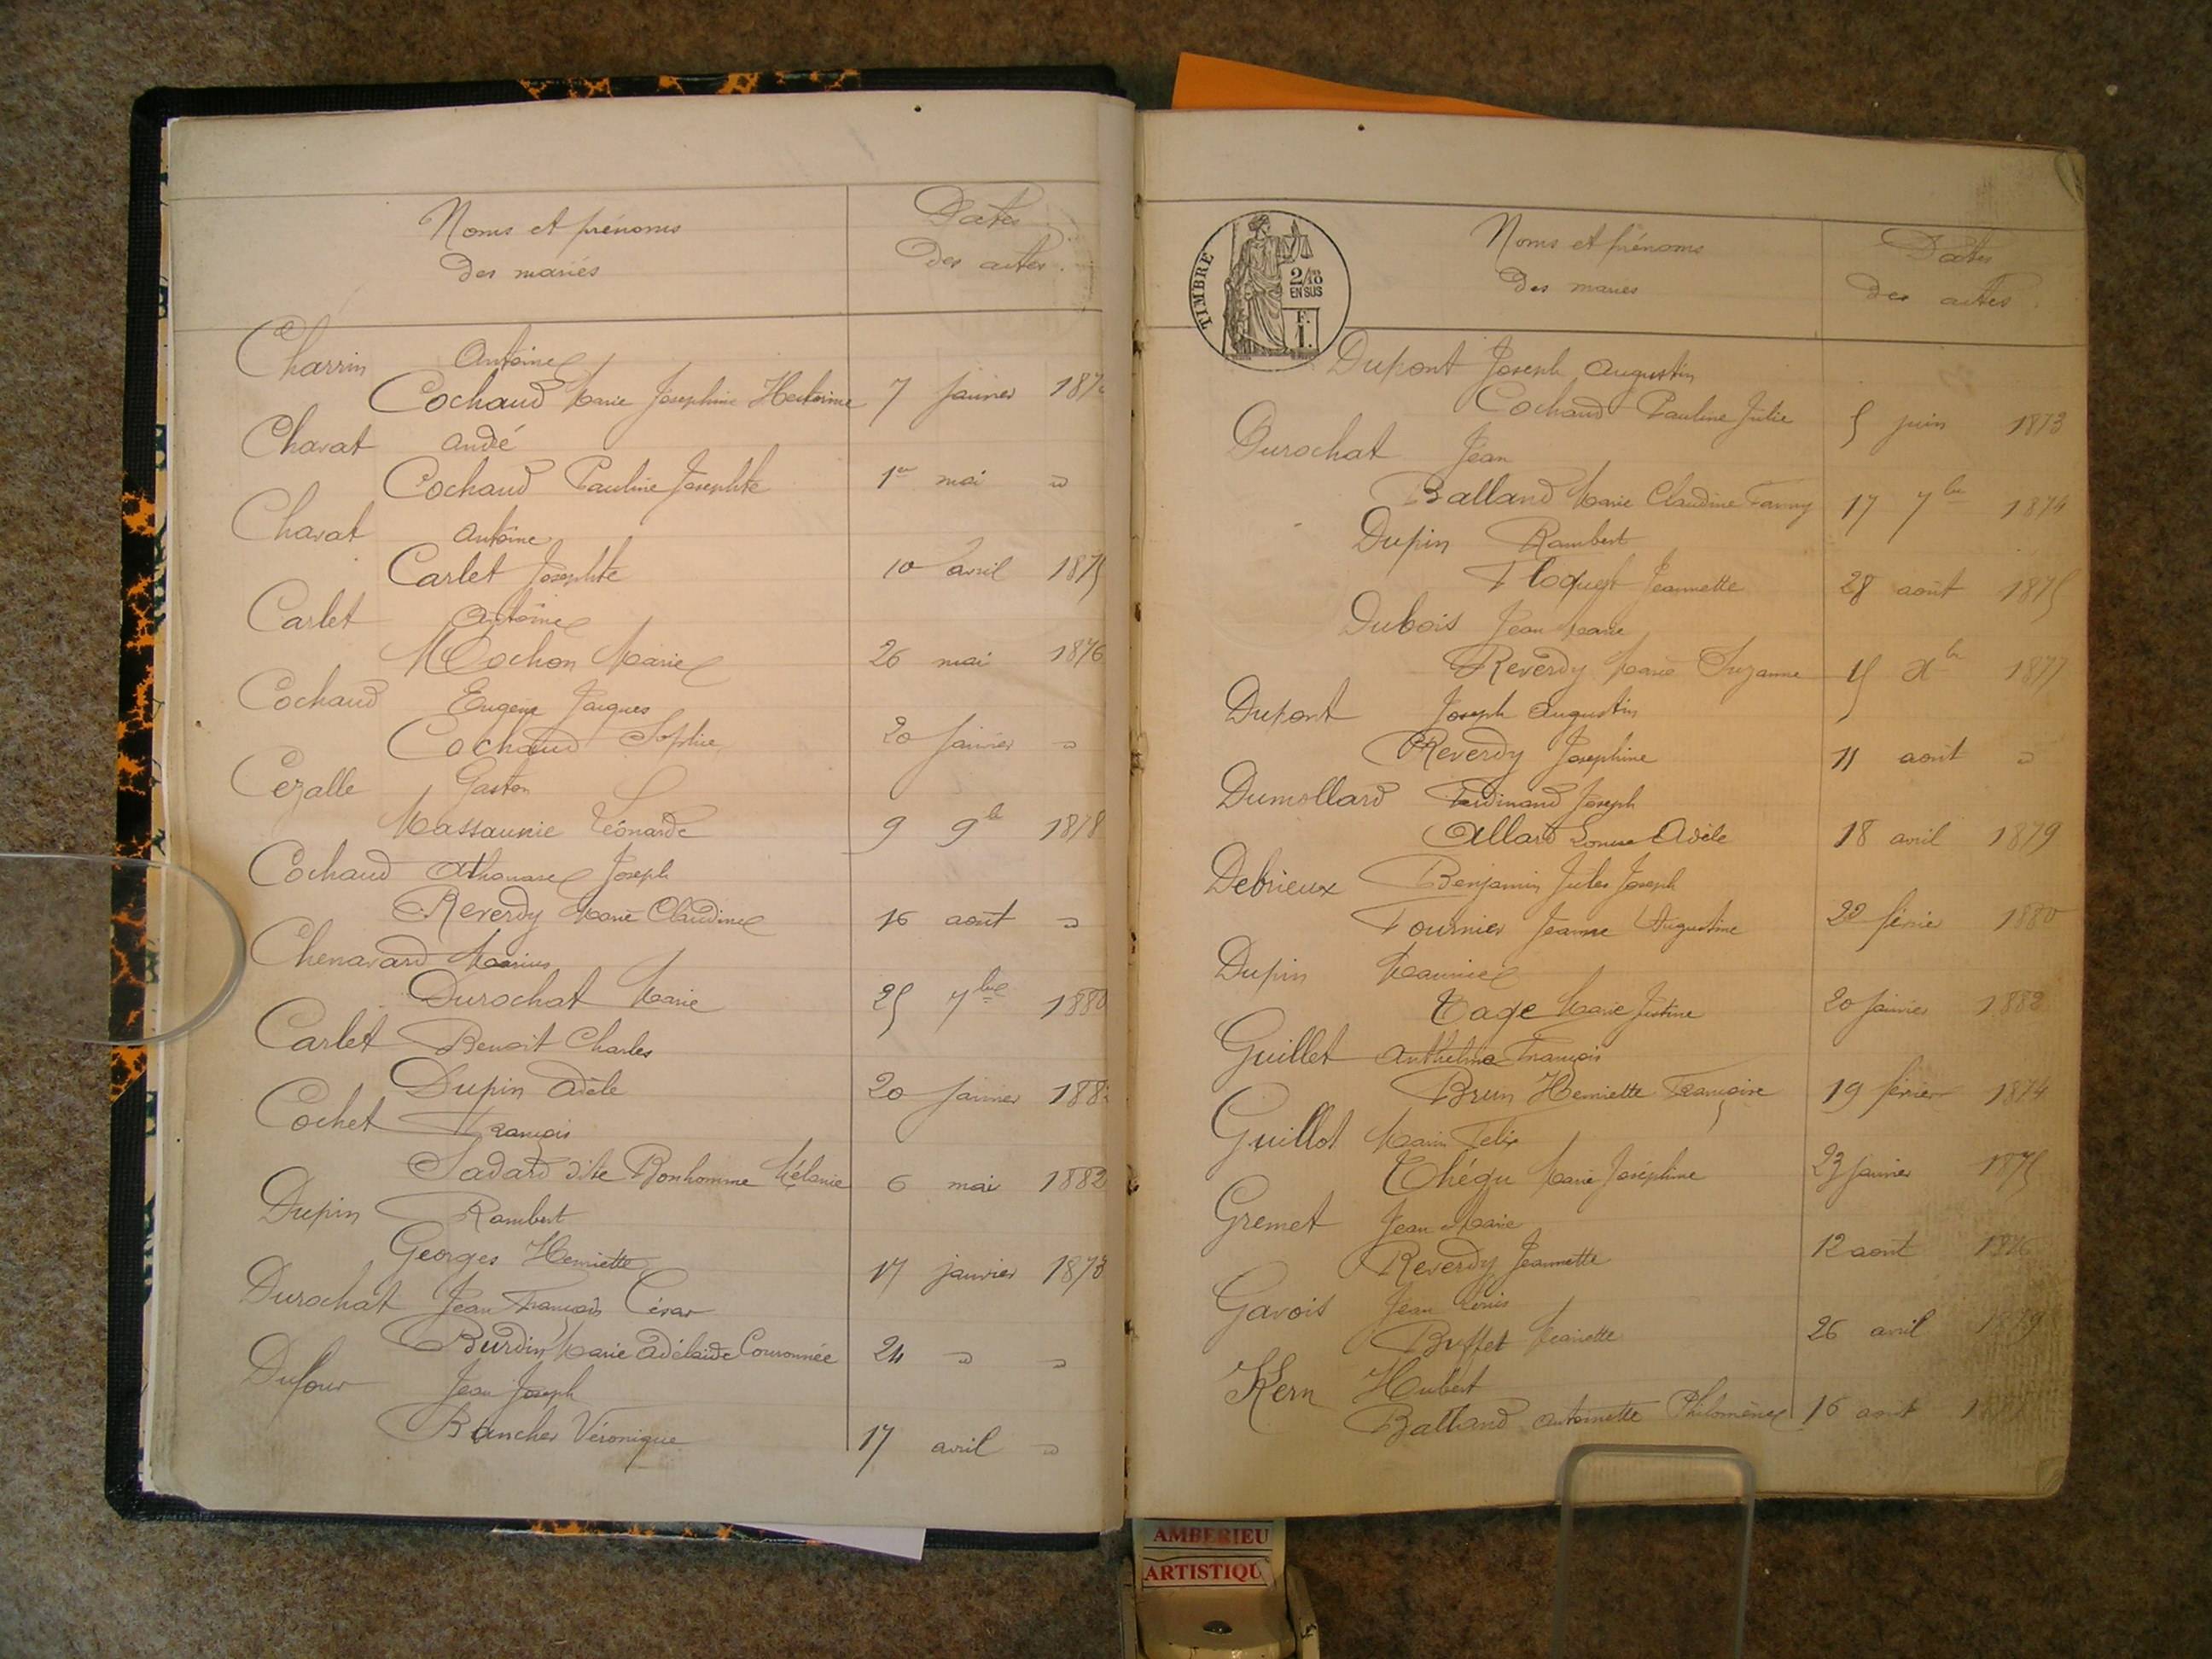 Noms et prénoms
des mariés
Dates
des actes.
Charrin Antoine
Cochaud Marie Josephine 7 janvier
Chavat André
Cochaud Pauline Josephte 1er mai "
Chavat Antoine
Carlet Josephte 10 avril 1875
Carlet Antoine
Mochon Marie 26 mai 1876
Cochaud Eugène Jacques
Cochaud Sophie 20 janvier "
Cezalle Gaston
Massaunie Léonarde 9 9b 1878
Cochaud Athanase Joseph
Reverdy Marie Claudine 16 août "
Chenavard Marius
Durochat Marie 25 7bre 1880
Carlet Benoit Charles
Dupin Adèle 20 janvier
Cochet François
Sadard dite Bonhomme Mélanie 6 mai 1882
Dupin Rambert
Georges Henriette 17 janvier 1873
Durochat Jean François César
Burdin Marie Adélaïde Couronnée 24 " "
Dufour Jean Joseph
Blancher Véronique 17 avril "
TIMBRE
2/10
EN SUS
F.
1.
Noms et prénoms
des mariés
Dates
des actes.
Dupont Joseph Augustin
Cochaud Pauline Julie 5 juin 1873
Durochat Jean
Balland Marie Claudine Fanny 17 7bre 1874
Dupin Rambert
Floquet Jeannette 28 août 1875
Dubois Jean Marie
Reverdy Marie Suzanne 15 Xbre 1877
Dupont Joseph Augustin
Reverdy Josephine 11 août "
Dumollard Ferdinand Joseph
Allard Louise Adèle 18 avril 1879
Debrieux Benjamin Jules Joseph
Fournier Jeanne Augustine février 1880
Dupin Maurice
Tage Marie Justine 20 janvier 1882
Guillet Anthelme François
Brun Henriette Françoise 19 février 1874
Guillot Marin Felix
Chégu Marie Joséphine 23 janvier 1875
Gremet Jean Marie
Reverdy Jeannette 12 août 1876
Gavois Jean Louis
Buffet Mariette 26 avril 1879
Kern Hubert
Balland Antoinette Philomène 16 août
AMBERIEU
ARTISTIQU